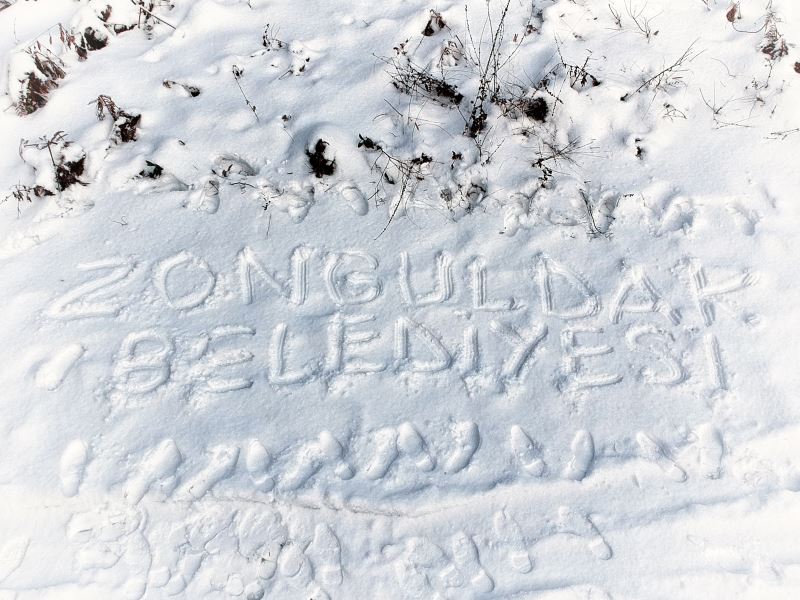 ZONGULDAK
BELEDIYESI